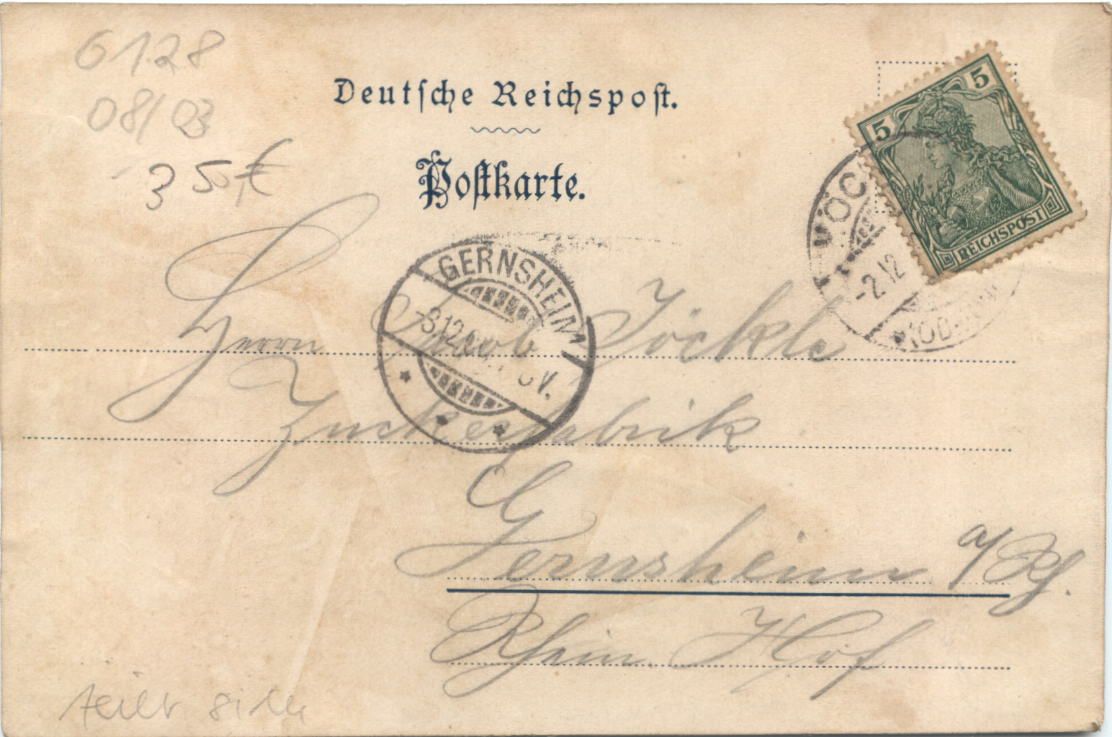 6128
08/03
35,- €
Deutsche Reichspost.
Postkarte.
5 5
REICHSPOST
-2.12
GERNSHEIM
-3.12.00
V.
Herrn Jacob Jöckle
Zuckerfabrik
Gernsheim a/Rh.
Rhein. Hof